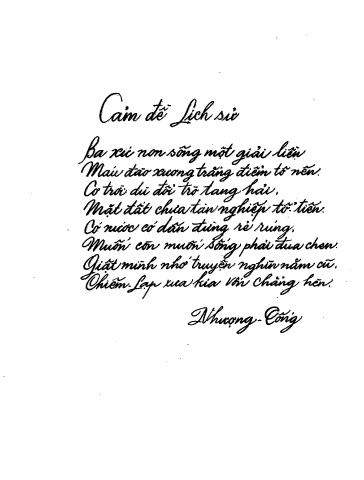 Cảm đề Lịch sử
Ba xứ non sông một giải liền
Máu đào xương trắng điểm tô nên.
Cơ trời dù đổi trò tang hải,
Mặt đất chưa tàn nghiệp tổ tiên.
Có nước có dân đừng rẻ rúng,
Muốn còn muốn sống phải đua chen.
Giật mình nhớ truyện nghìn năm cũ,
Chiêm-Lạp xưa kia vốn chẳng hèn.
Nhượng-Tống